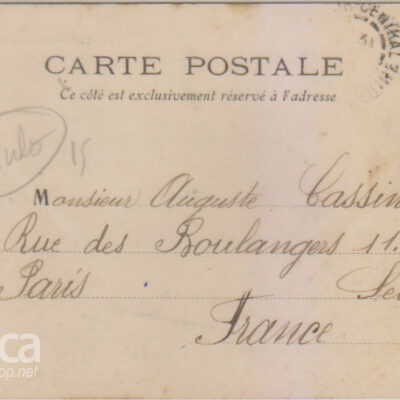 CENTRAL
31
CARTE POSTALE
Ce côté est exclusivement réservé à l'adresse
15
Monsieur Auguste Cassin
Rue des Boulangers 11.
Paris Se
France
ca
op.net